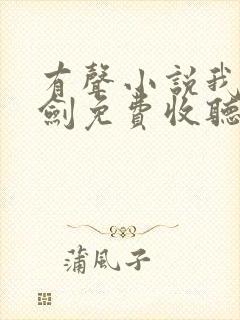 有聲小說我
劍免費收聽
蒲風子